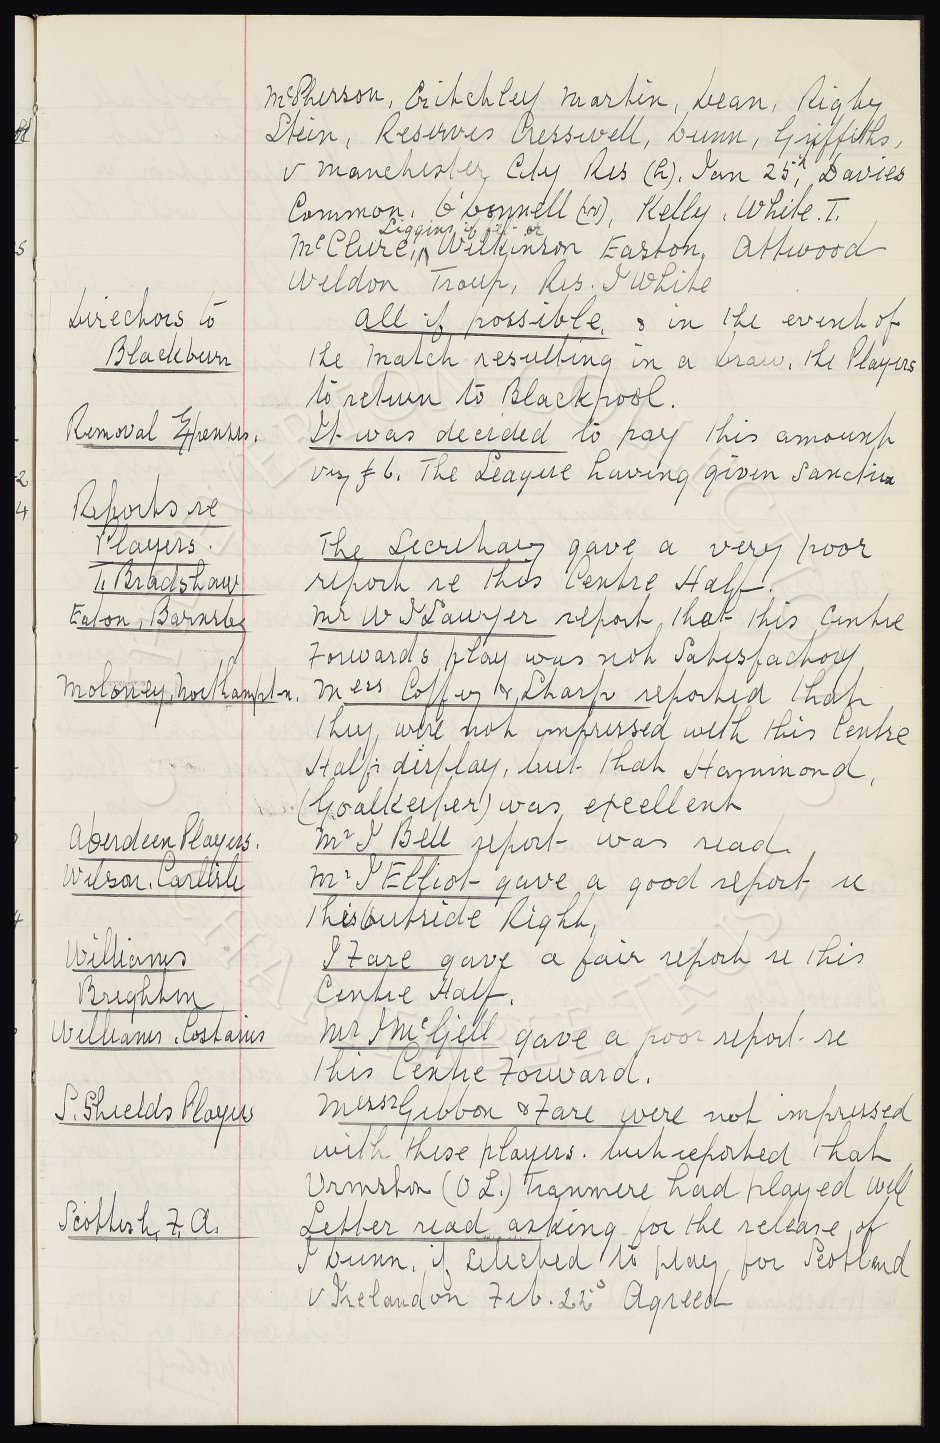 McPherson, Critchley Martin, Dean, Rigby
Stein, Reserves Cresswell, Dunn, Griffiths,
v Manchester City Res (h). Jan 25th, Davies
Common, O'Donnell (w), Kelly, White. T.
Liggins if fit - or
McClure, Wilkinson Easton, Attwood
Weldon Troup, Res. J White
Directors to
Blackburn
all if possible, & in the event of
the match resulting in a draw, the Players
to return to Blackpool.
Removal Expenses.
It was decided to pay this amount
viz £6. The League having given sanction
Reports re
Players.
T. Bradshaw
The Secretary gave a very poor
report re this Centre Half.
Eaton, Barnsley
Mr W J Sawyer report that this Centre
Forwards play was not Satisfactory
Moloney, Northampton.
Mess Coffey & Sharp reported that
they were not impressed with this Centre
Half display, but that Hammond,
(Goalkeeper) was excellent
Aberdeen Players.
Mr J Bell report was read
Wilson. Carlisle
Mr J Elliot gave a good report re
this Outside Right,
Williams
Brighton
J Fare gave a fair report re this
Centre Half.
Williams. Costains
Mr J McGill gave a poor report re
this Centre Forward.
S. Shields Players
Messrs Gibbon & Fare were not impressed
with these players. but reported that
Urmston (O L.) Tranmere had played well
Scottish, F. A.
Letter read asking for the release of
J Dunn, if selected to play for Scotland
v Ireland on Feb. 22nd Agreed